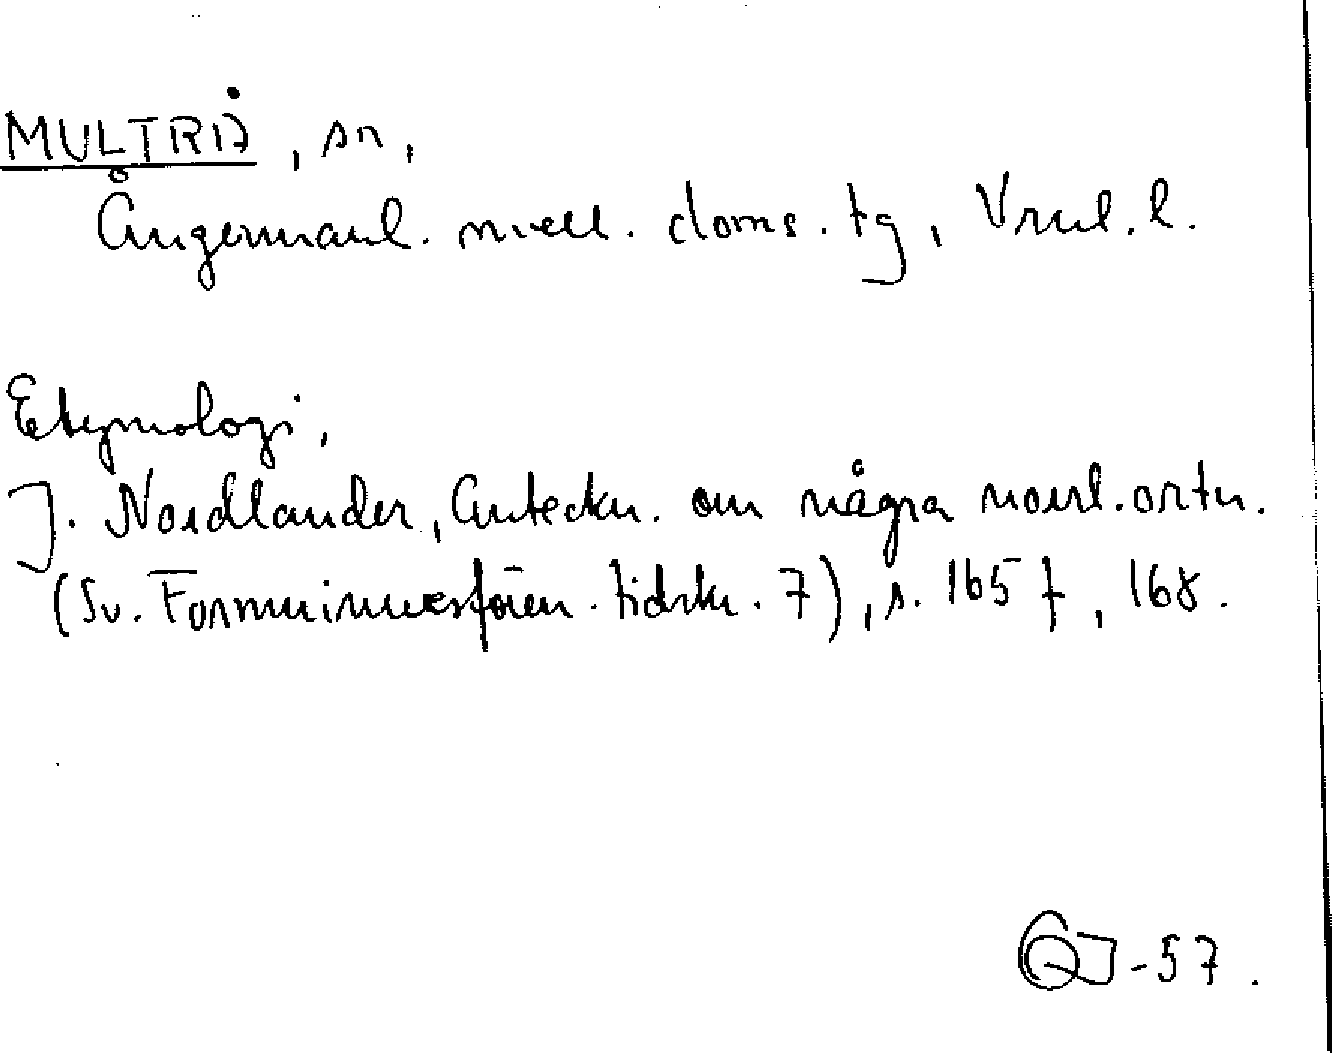 MULTRÅ, sn,
Ångermanl. mell. doms. tg, Vrnl. l.
Etymologi,
J. Nordlander, Anteckn. om några norrl. ortn.
(Sv. Fornminnesfören. tidskr. 7), s. 165 f, 168.
-57.